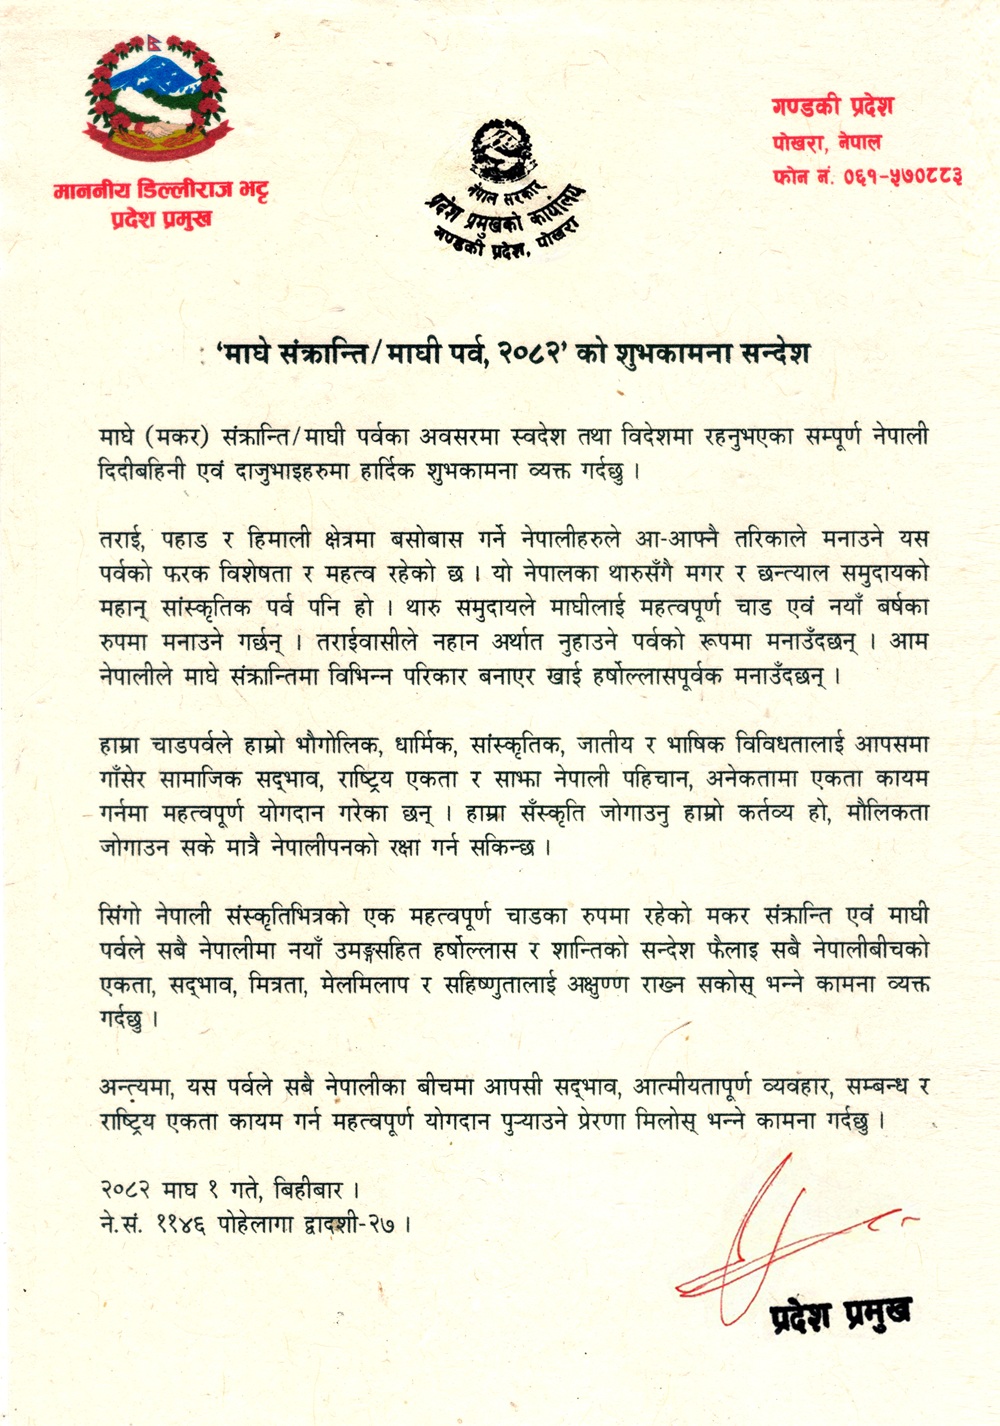 माननीय डिल्लीराज भट्ट
प्रदेश प्रमुख
नेपाल सरकार
प्रदेश प्रमुखको कार्यालय
गण्डकी प्रदेश, पोखरा
गण्डकी प्रदेश
पोखरा, नेपाल
फोन नं. ०६१-५७०८८३
‘माघे संक्रान्ति/माघी पर्व, २०८२’ को शुभकामना सन्देश
माघे (मकर) संक्रान्ति/माघी पर्वका अवसरमा स्वदेश तथा विदेशमा रहनुभएका सम्पूर्ण नेपाली
दिदीबहिनी एवं दाजुभाइहरुमा हार्दिक शुभकामना व्यक्त गर्दछु ।
तराई, पहाड र हिमाली क्षेत्रमा बसोबास गर्ने नेपालीहरुले आ-आफ्नै तरिकाले मनाउने यस
पर्वको फरक विशेषता र महत्व रहेको छ । यो नेपालका थारुसँगै मगर र छन्त्याल समुदायको
महान् सांस्कृतिक पर्व पनि हो । थारु समुदायले माघीलाई महत्वपूर्ण चाड एवं नयाँ बर्षका
रुपमा मनाउने गर्छन् । तराईवासीले नहान अर्थात नुहाउने पर्वको रूपमा मनाउँदछन् । आम
नेपालीले माघे संक्रान्तिमा विभिन्न परिकार बनाएर खाई हर्षोल्लासपूर्वक मनाउँदछन् ।
हाम्रा चाडपर्वले हाम्रो भौगोलिक, धार्मिक, सांस्कृतिक, जातीय र भाषिक विविधतालाई आपसमा
गाँसेर सामाजिक सद्‌भाव, राष्ट्रिय एकता र साझा नेपाली पहिचान, अनेकतामा एकता कायम
गर्नमा महत्वपूर्ण योगदान गरेका छन् । हाम्रा सँस्कृति जोगाउनु हाम्रो कर्तव्य हो, मौलिकता
जोगाउन सके मात्रै नेपालीपनको रक्षा गर्न सकिन्छ ।
सिंगो नेपाली संस्कृतिभित्रको एक महत्वपूर्ण चाडका रुपमा रहेको मकर संक्रान्ति एवं माघी
पर्वले सबै नेपालीमा नयाँ उमङ्गसहित हर्षोल्लास र शान्तिको सन्देश फैलाइ सबै नेपालीबीचको
एकता, सद्‌भाव, मित्रता, मेलमिलाप र सहिष्णुतालाई अक्षुण्ण राख्न सकोस् भन्ने कामना व्यक्त
गर्दछु ।
अन्त्यमा, यस पर्वले सबै नेपालीका बीचमा आपसी सद्‌भाव, आत्मीयतापूर्ण व्यवहार, सम्बन्ध र
राष्ट्रिय एकता कायम गर्न महत्वपूर्ण योगदान पुऱ्याउने प्रेरणा मिलोस् भन्ने कामना गर्दछु ।
२०८२ माघ १ गते, बिहीबार ।
ने.सं. ११४६ पोहेलागा द्वादशी-२७ ।
प्रदेश प्रमुख